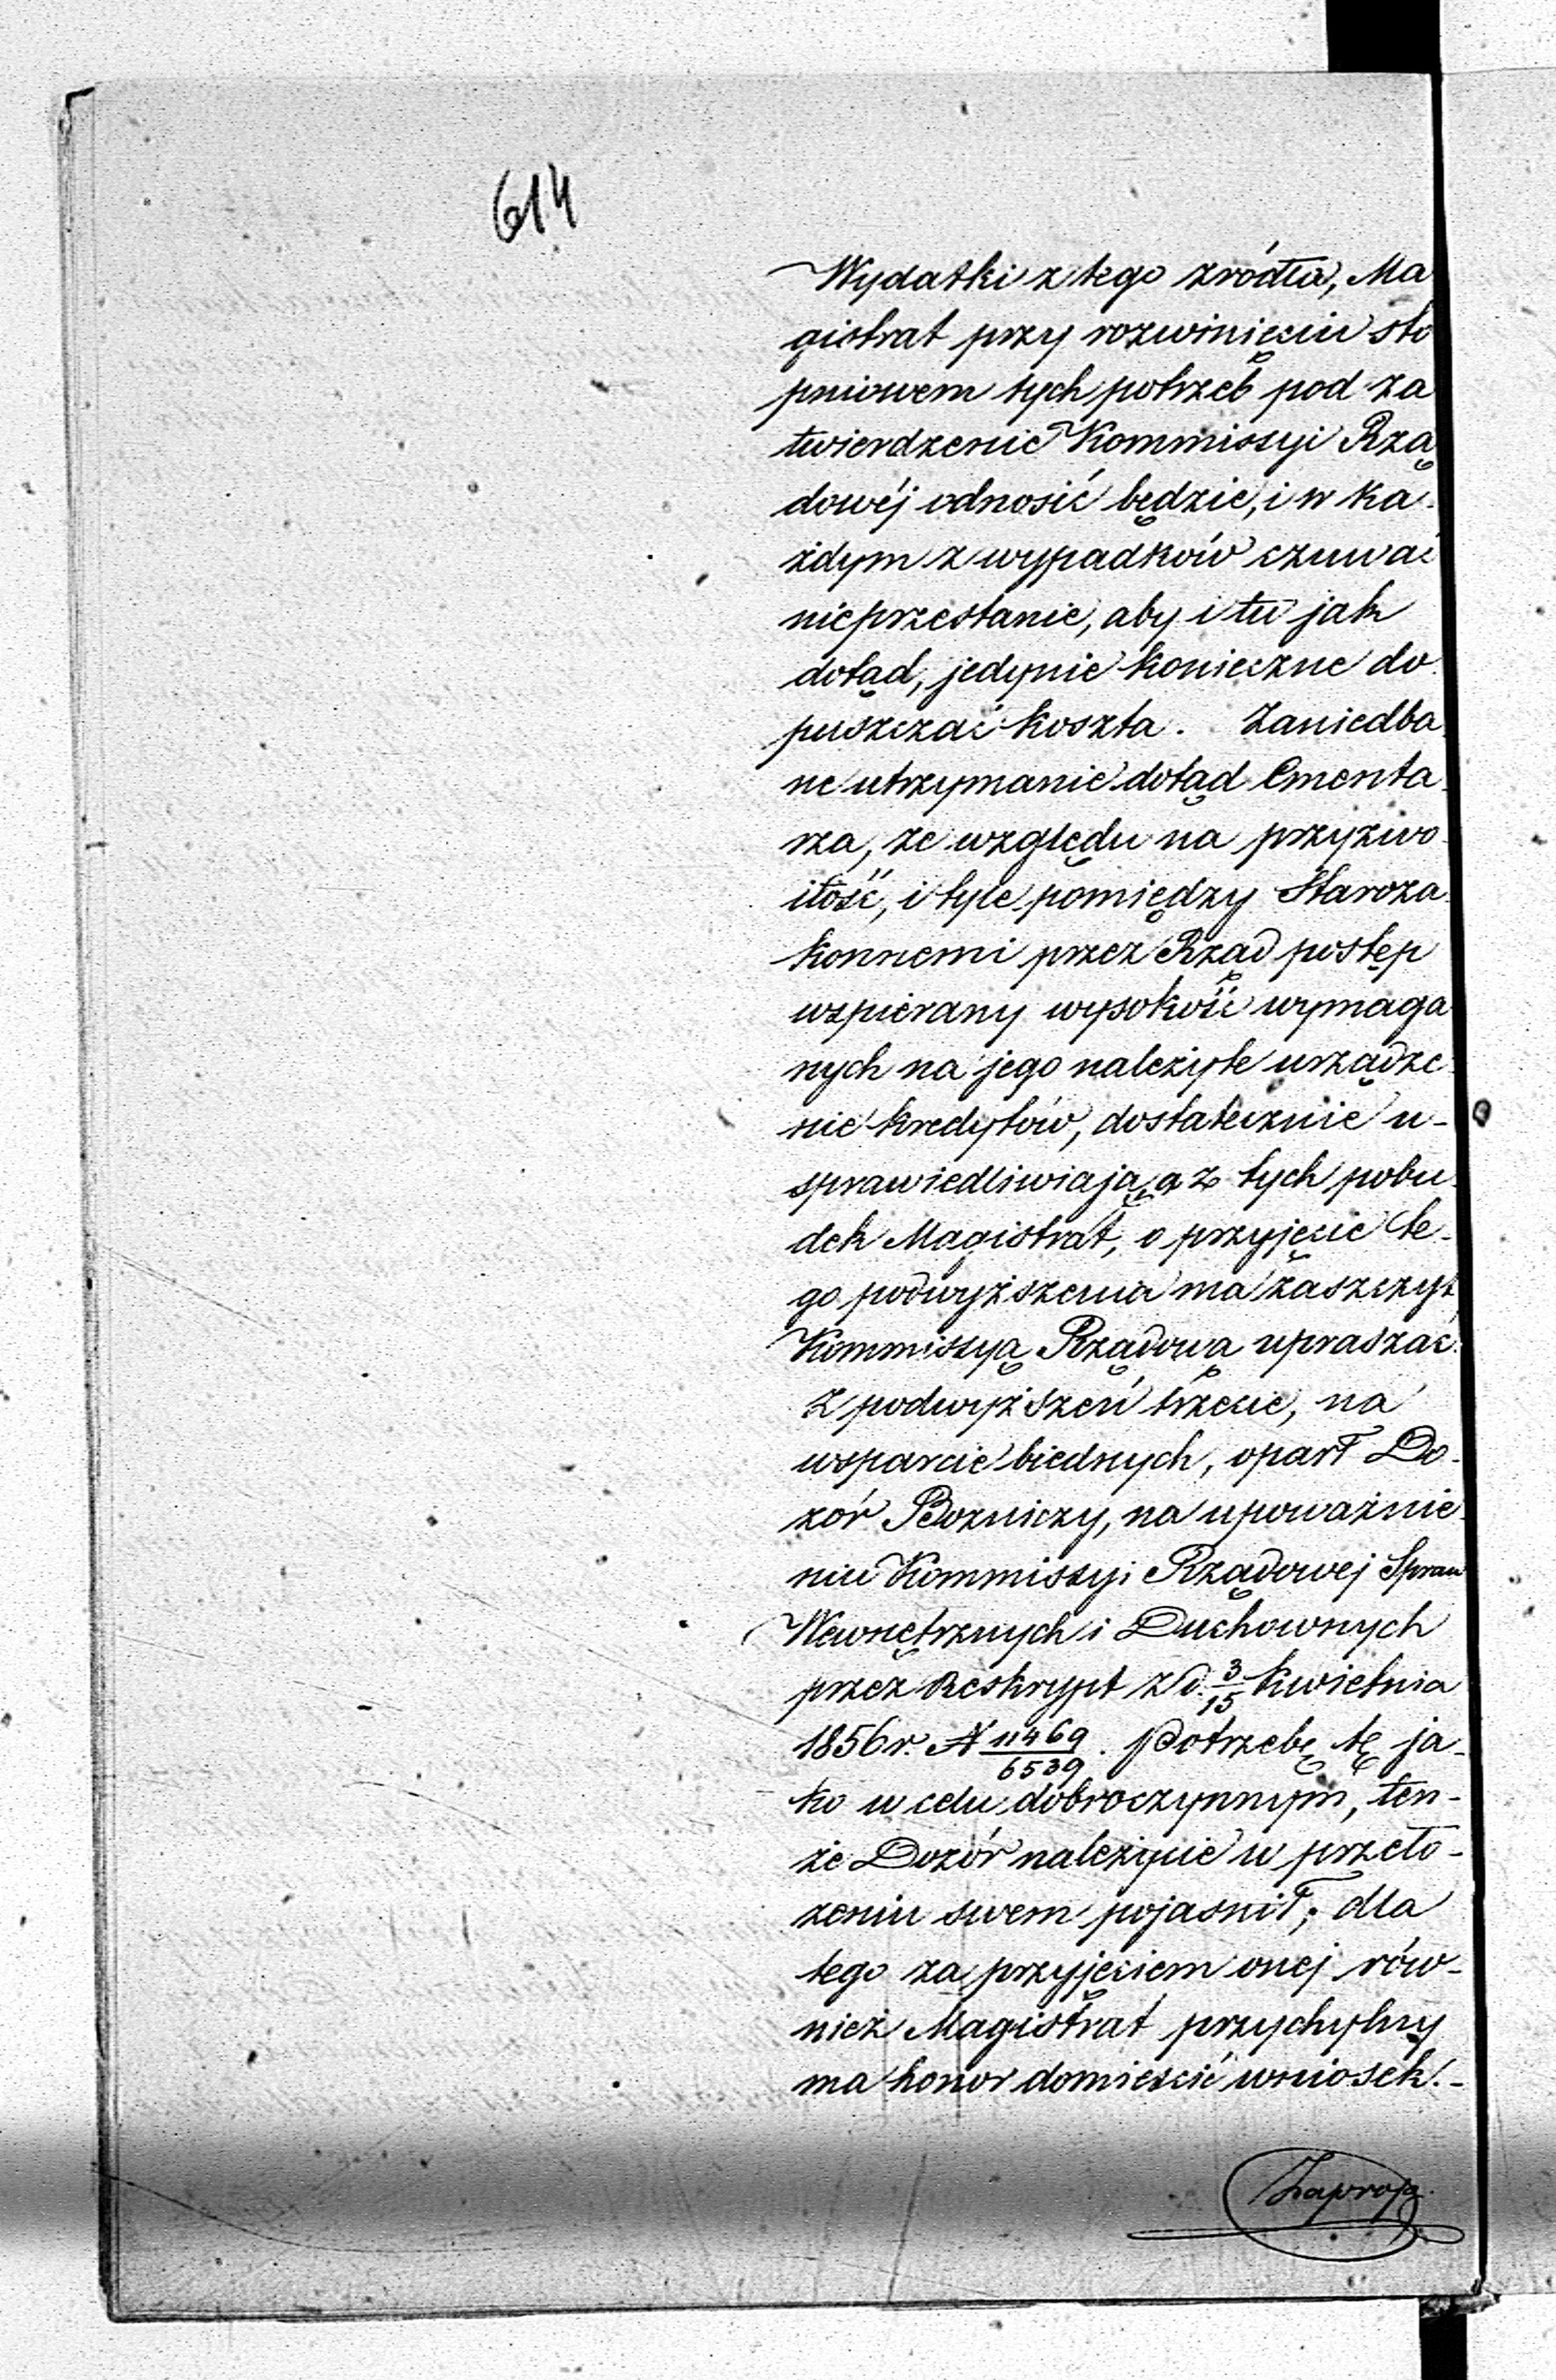 614
Wydatki z tego źródła, Ma
gistrat przy rozwinięciu sto
pniowem tych potrzeb pod za
twierdzenie Kommissyi Rzą
dowéj odnosić będzie, i w ka-
żdym z wypadków czuwać
nieprzestanie, aby i tu jak
dotąd, jedynie konieczne do
puszczać koszta. Zaniedba
ne utrzymanie dotąd Cmenta
rza, ze względu na przyzwo
itość, i tyle pomiędzy Staroza
konnemi przez Rząd postęp
wspierany wysokość wymaga
nych na jego należyte urządze
nie kredytów, dostatecznie u-
sprawiedliwiają, a z tych pobu
dek Magistrat, o przyjęcie te-
go podwyższenia ma zaszczyt
Kommissyą Rządową upraszać.
Z podwyższeń trzecie, na
wsparcie biednych, oparł Do-
zór Bożniczy, na upoważnie
niu Kommissyi Rządowej Spraw
Wewnętrznych i Duchownych
przez Reskrypt z d. 3/15 Kwietnia
1856 r. N 11469/6539. Potrzebę tę ja-
ko w celu dobroczynnym, ten-
że Dozór należycie w przeło-
żeniu swem pojasnił; dla
tego za przyjęciem onej rów-
nież Magistrat przychylny
ma honor domieścić wniosek.-